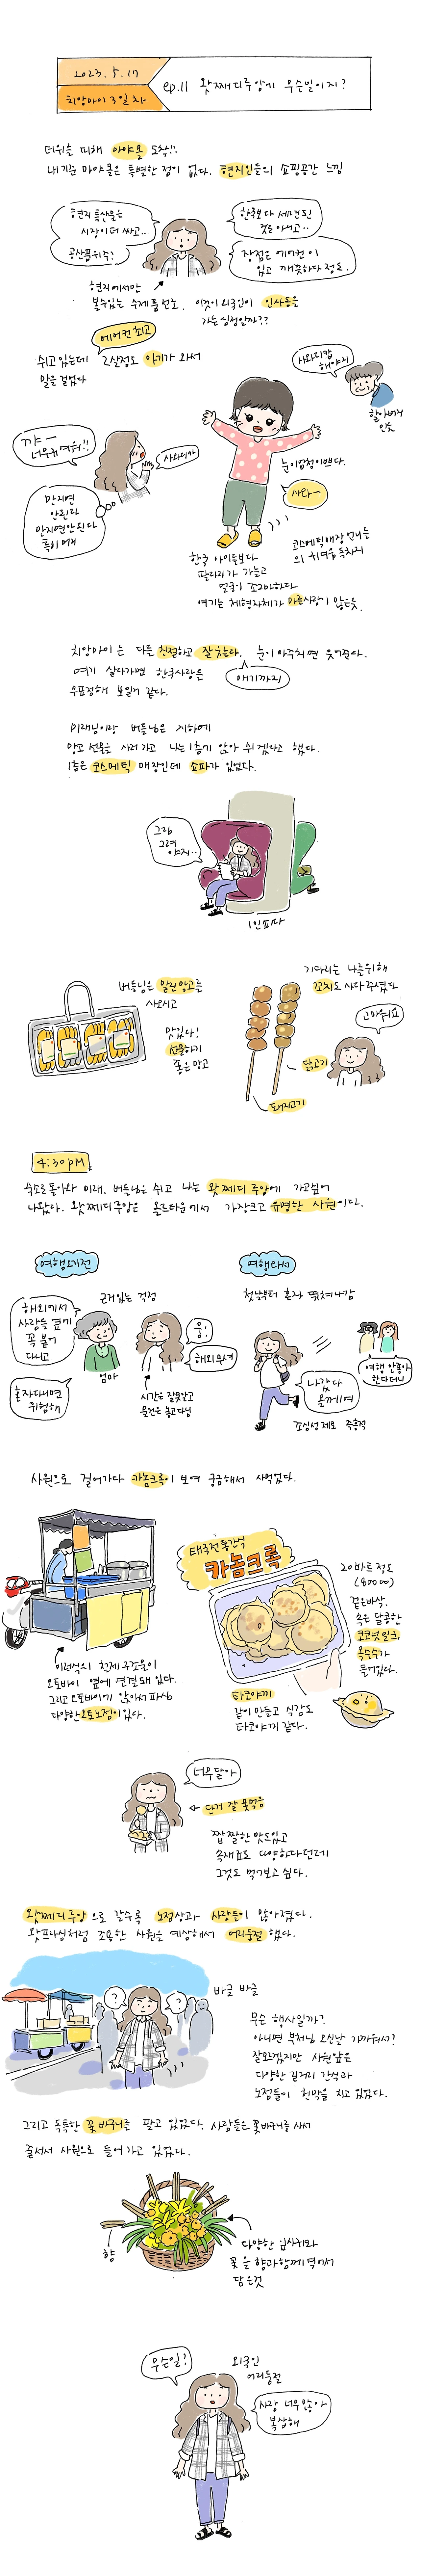 2023. 5. 17
치앙마이 3일차
ep.11 왓쩨디루앙에 무슨일이지?
더위를 피해 마야몰 도착!!
내 기준 마야몰은 특별한 점이 없다. 현지인들의 쇼핑공간 느낌
현지 특산품은
시장이 더 싸고...
공산품위주?
한국보다 세련된
것은 아니고..
장점은 에어컨이
있고 깨끗하다 정도.
현지에서만
볼수있는 수제품 선호.
이것이 외국인이 인사동을
가는 심정일까??
에어컨 최고
쉬고 있는데 2살정도 아기가 와서
말을 걸었다
사와디캅
해야지
할아버지
인듯
꺄 ―
너무귀여워!!
사와디카
만지면
안된다
만지면안된다
눈이엄청이쁘다.
사와~
한국 아이들보다
팔다리가 가늘고
얼굴이 조그마하다
여기는 체형자체가 마른사람이 많은듯.
코스메틱매장 언니들
의 귀여움 독차지
치앙마이는 다들 친절하고 잘웃는다. 눈이 마주치면 웃어준다.
여기 살다가면 한국사람들
무표정해 보일거 같다.
애기까지
미래님이랑 버들님은 지하에
망고 선물을 사러 가고 나는 1층에 앉아 쉬겠다고 했다.
1층은 코스메틱 매장인데 쇼파가 있었다.
그림
그려
야지..
1인쇼파
버들님은 말린망고를
사오시고
맛있다!
선물하기
좋은 망고
기다리는 나를위해
꼬치도 사다주셨다
고마워요
닭고기
돼지고기
4:30PM
숙소로 돌아와 미래, 버들님은 쉬고 나는 왓쩨디루앙에 가고싶어
나왔다. 왓쩨디루앙은 올드타운에서 가장크고 유명한 사원이다.
여행오기전
해외에서
사람들 옆에
꼭 붙어
다니고
혼자다니면
위험해
근거있는 걱정
엄마
응!
해외무서
시간은 잘못맞고
물건은 놓고다님
여행와서
첫날부터 혼자 뛰쳐나감
나갔다
올게여
여행 안좋아
한다더니
조심성 제로 즉흥적
사원으로 걸어가다 카놈크록이 보여 궁금해서 사먹었다.
이런식의 철제 구조물이
오토바이 옆에 연결돼 있다.
그리고 오토바이에 앉아서 파심
다양한 오토노점이 있다.
태국전통간식
카놈크록
20바트 정도
(800원)
겉은바삭,
속은 달콤한
코코넛밀크,
옥수수가
들어있다.
타코야끼
같이 만들고 식감도
타코야끼 같다.
너무달아
단거 잘 못먹음
짭짤한 맛도있고
속재료도 다양하다던데
그것도 먹어보고 싶다.
왓쩨디루앙으로 갈수록 노점상과 사람들이 많아졌다.
왓프라싱처럼 조용한 사원을 예상해서 어리둥절 했다.
?
?
바글 바글
무슨 행사일까?
아니면 부처님 오신날 가까워서?
잘모르겠지만 사원앞은
다양한 길거리 간식과
노점들이 천막을 치고 있었다.
그리고 독특한 꽃바구니를 팔고 있었다. 사람들은 꽃바구니를 사서
줄서서 사원으로 들어가고 있었다.
향
다양한 잎사귀와
꽃을 향과함께 엮어서
담은것
무슨일?
외국인
어리둥절
사람 너무많아
복잡해